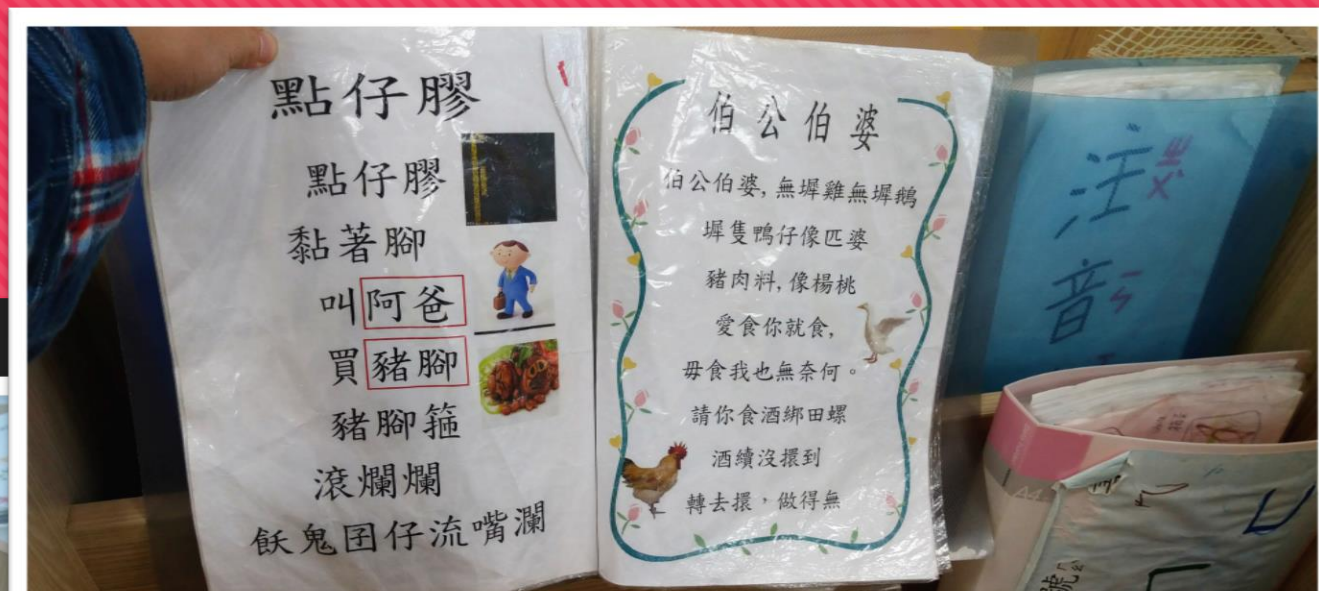 點仔膠
點仔膠
黏著腳
叫阿爸
買豬腳
豬腳箍
滾爛爛
飫鬼囝仔流嘴瀾
伯公伯婆
伯公伯婆,無墀雞無墀鵝
墀隻鴨仔像匹婆
豬肉料,像楊桃
愛食你就食,
毋食我也無奈何。
請你食酒綁田螺
酒續沒擐到
轉去擐,做得無
注ㄓㄨ
音ㄧㄣ
號